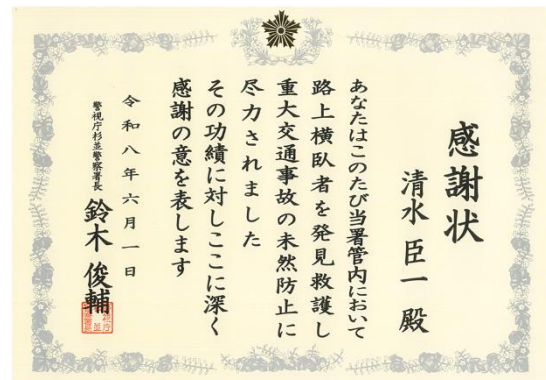 感謝状
清水臣一 殿
あなたはこのたび当署管内において
路上横臥者を発見救護し
重大交通事故の未然防止に
尽力されました
その功績に対しここに深く
感謝の意を表します
令和八年六月一日
警視庁杉並警察署長
鈴木俊輔